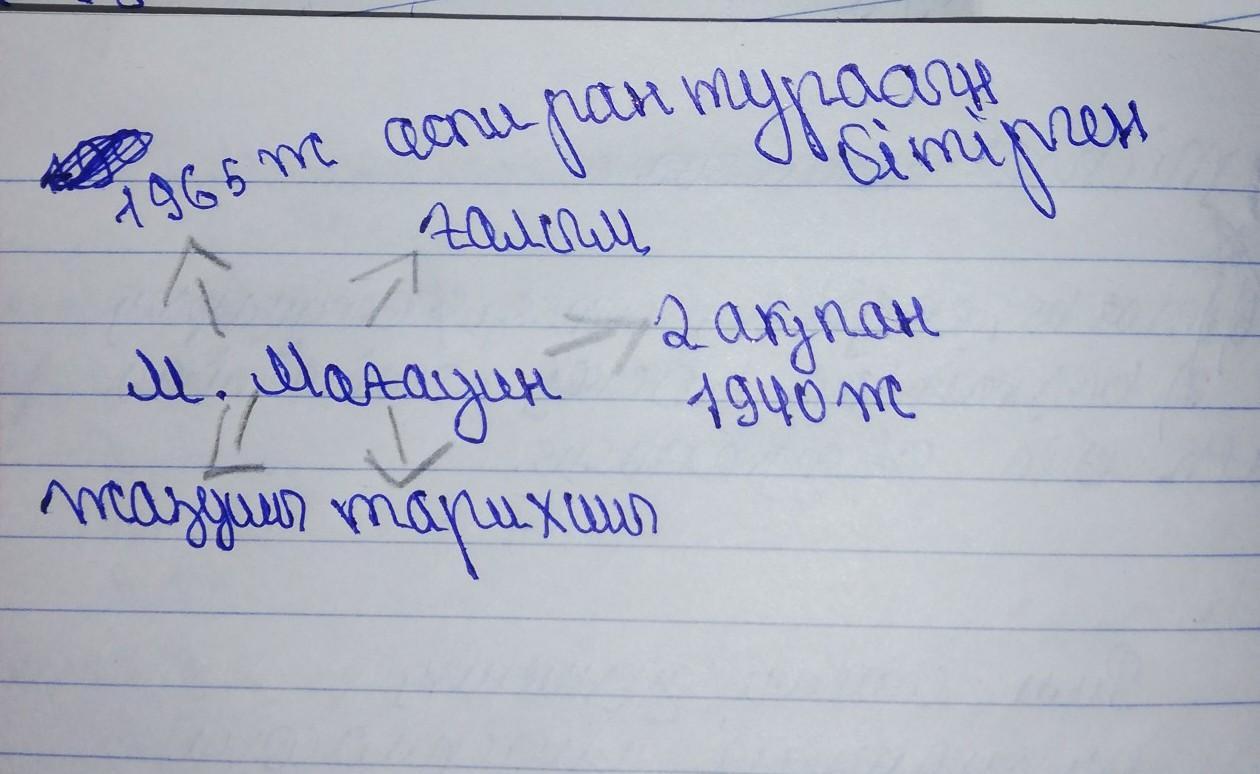 1965 ж аспирантурасын
бітірген
ғалым
2 ақпан
М. Мағауин
1940 ж
жазушы тарихшы